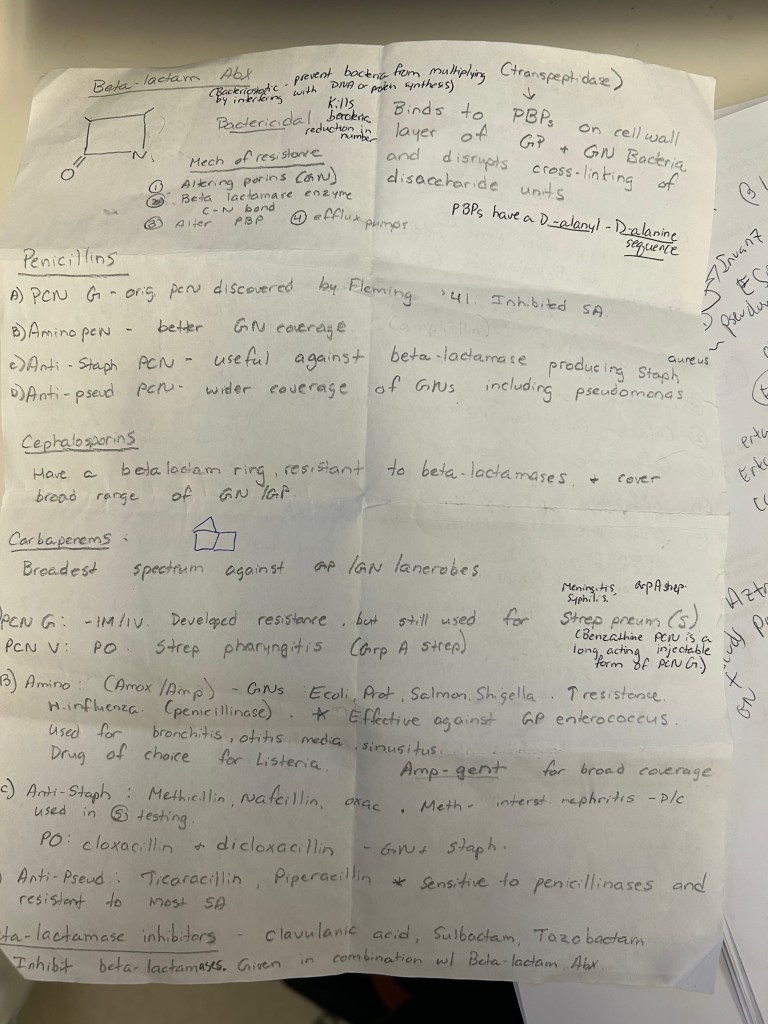 Beta-lactam Abx
(Bacteriostatic - prevent bacteria from multiplying
by interfering with DNA or protein synthesis)
Bactericidal Kills bacteria
reduction in number
O
N
(transpeptidase)
Binds to PBPs on cell wall
layer of GP + GN Bacteria
and disrupts cross-linking of
disaccharide units
PBPs have a D-alanyl - D-alanine
sequence
Mech of resistance
① Altering porins (GN)
② Beta lactamase enzyme
C-N bond
③ Alter PBP ④ efflux pumps
Penicillins
A) PCN G - orig pcn discovered by Fleming '41. Inhibited SA
B) Amino pcn - better GN coverage
C) Anti-Staph PCN - useful against beta-lactamase producing Staph aureus
D) Anti-pseud PCN - wider coverage of GNs including pseudomonas
Cephalosporins
Have a beta lactam ring, resistant to beta-lactamases. + cover
broad range of GN/GP.
Carbapenems:
Broadest spectrum against GP/GN/anerobes
Meningitis GrpA strep
Syphilis
PCN G: -IM/IV. Developed resistance, but still used for Strep pneum (S)
PCN V: PO. Strep pharyngitis (Grp A strep)
(Benzathine PCN is a
long acting injectable
form of PCN G)
B) Amino: (Amox/Amp) - GNs Ecoli, Prot, Salmon, Shigella. ↑ resistance.
H.influenza (penicillinase). * Effective against GP enterococcus.
used for bronchitis, otitis media, sinusitus.
Drug of choice for Listeria.
Amp-gent for broad coverage
C) Anti-Staph: Methicillin, Nafcillin, oxac. Meth- interst nephritis - D/C
used in Ⓢ testing.
PO: cloxacillin + dicloxacillin - GN+ Staph.
Anti-Pseud: Ticaracillin, Piperacillin * Sensitive to penicillinases and
resistant to most SA
ta-lactamase inhibitors - clavulanic acid, Sulbactam, Tazobactam
Inhibit beta-lactamases. Given in combination w/ Beta-lactam Abx.
Invanz